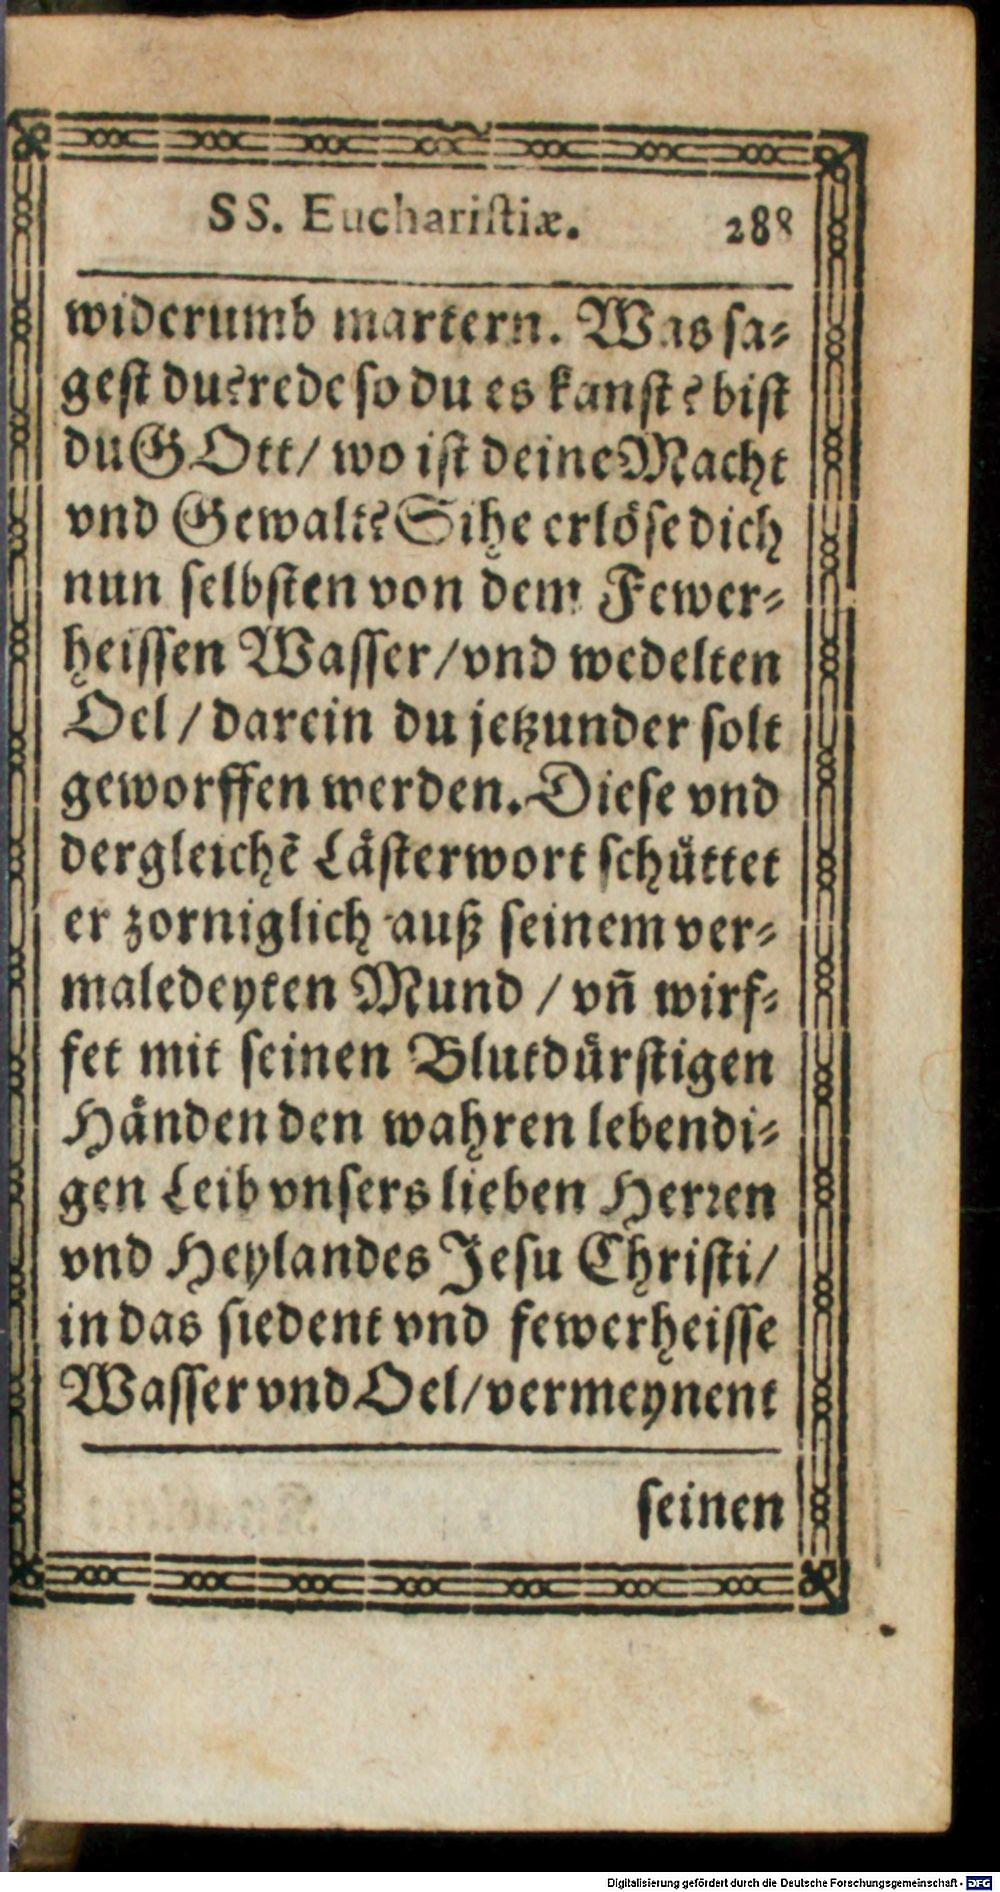 SS. Euchariſtiæ. 288
widerumb martern. Was ſa-
geſt du? rede ſo du es kanſt? biſt
du GOtt/ wo iſt deine Macht
vnd Gewalt? Sihe erlöſe dich
nun ſelbſten von dem Fewer-
heiſſen Waſſer/ vnd wedelten
Oel/ darein du jetzunder ſolt
geworffen werden. Dieſe vnd
dergleichẽ Läſterwort ſchüttet
er zorniglich auß ſeinem ver-
maledeyten Mund / vñ wirf-
fet mit ſeinen Blutdürſtigen
Händen den wahren lebendi-
gen Leib vnſers lieben Herꝛen
vnd Heylandes Jeſu Chriſti/
in das ſiedent vnd fewerheiſſe
Waſſer vnd Oel/ vermeynent
ſeinen
Digitalisierung gefördert durch die Deutsche Forschungsgemeinschaft - DFG